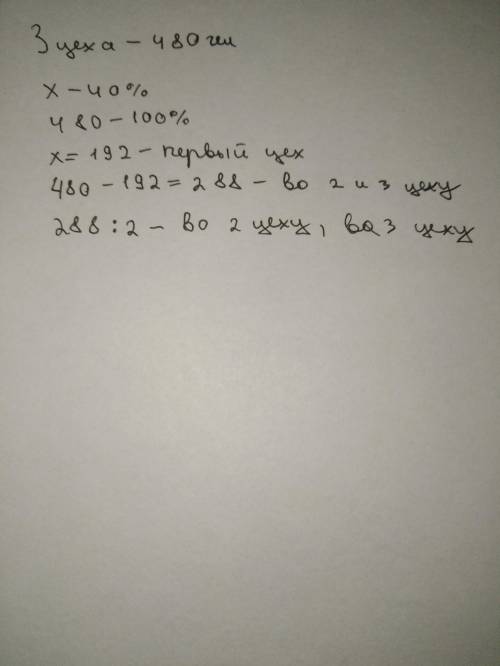 3 цеха – 480 чел
х – 40%
480 – 100%
х = 192 – первый цех
480 – 192 = 288 – во 2 и 3 цеху
288 : 2 – во 2 цеху, во 3 цеху